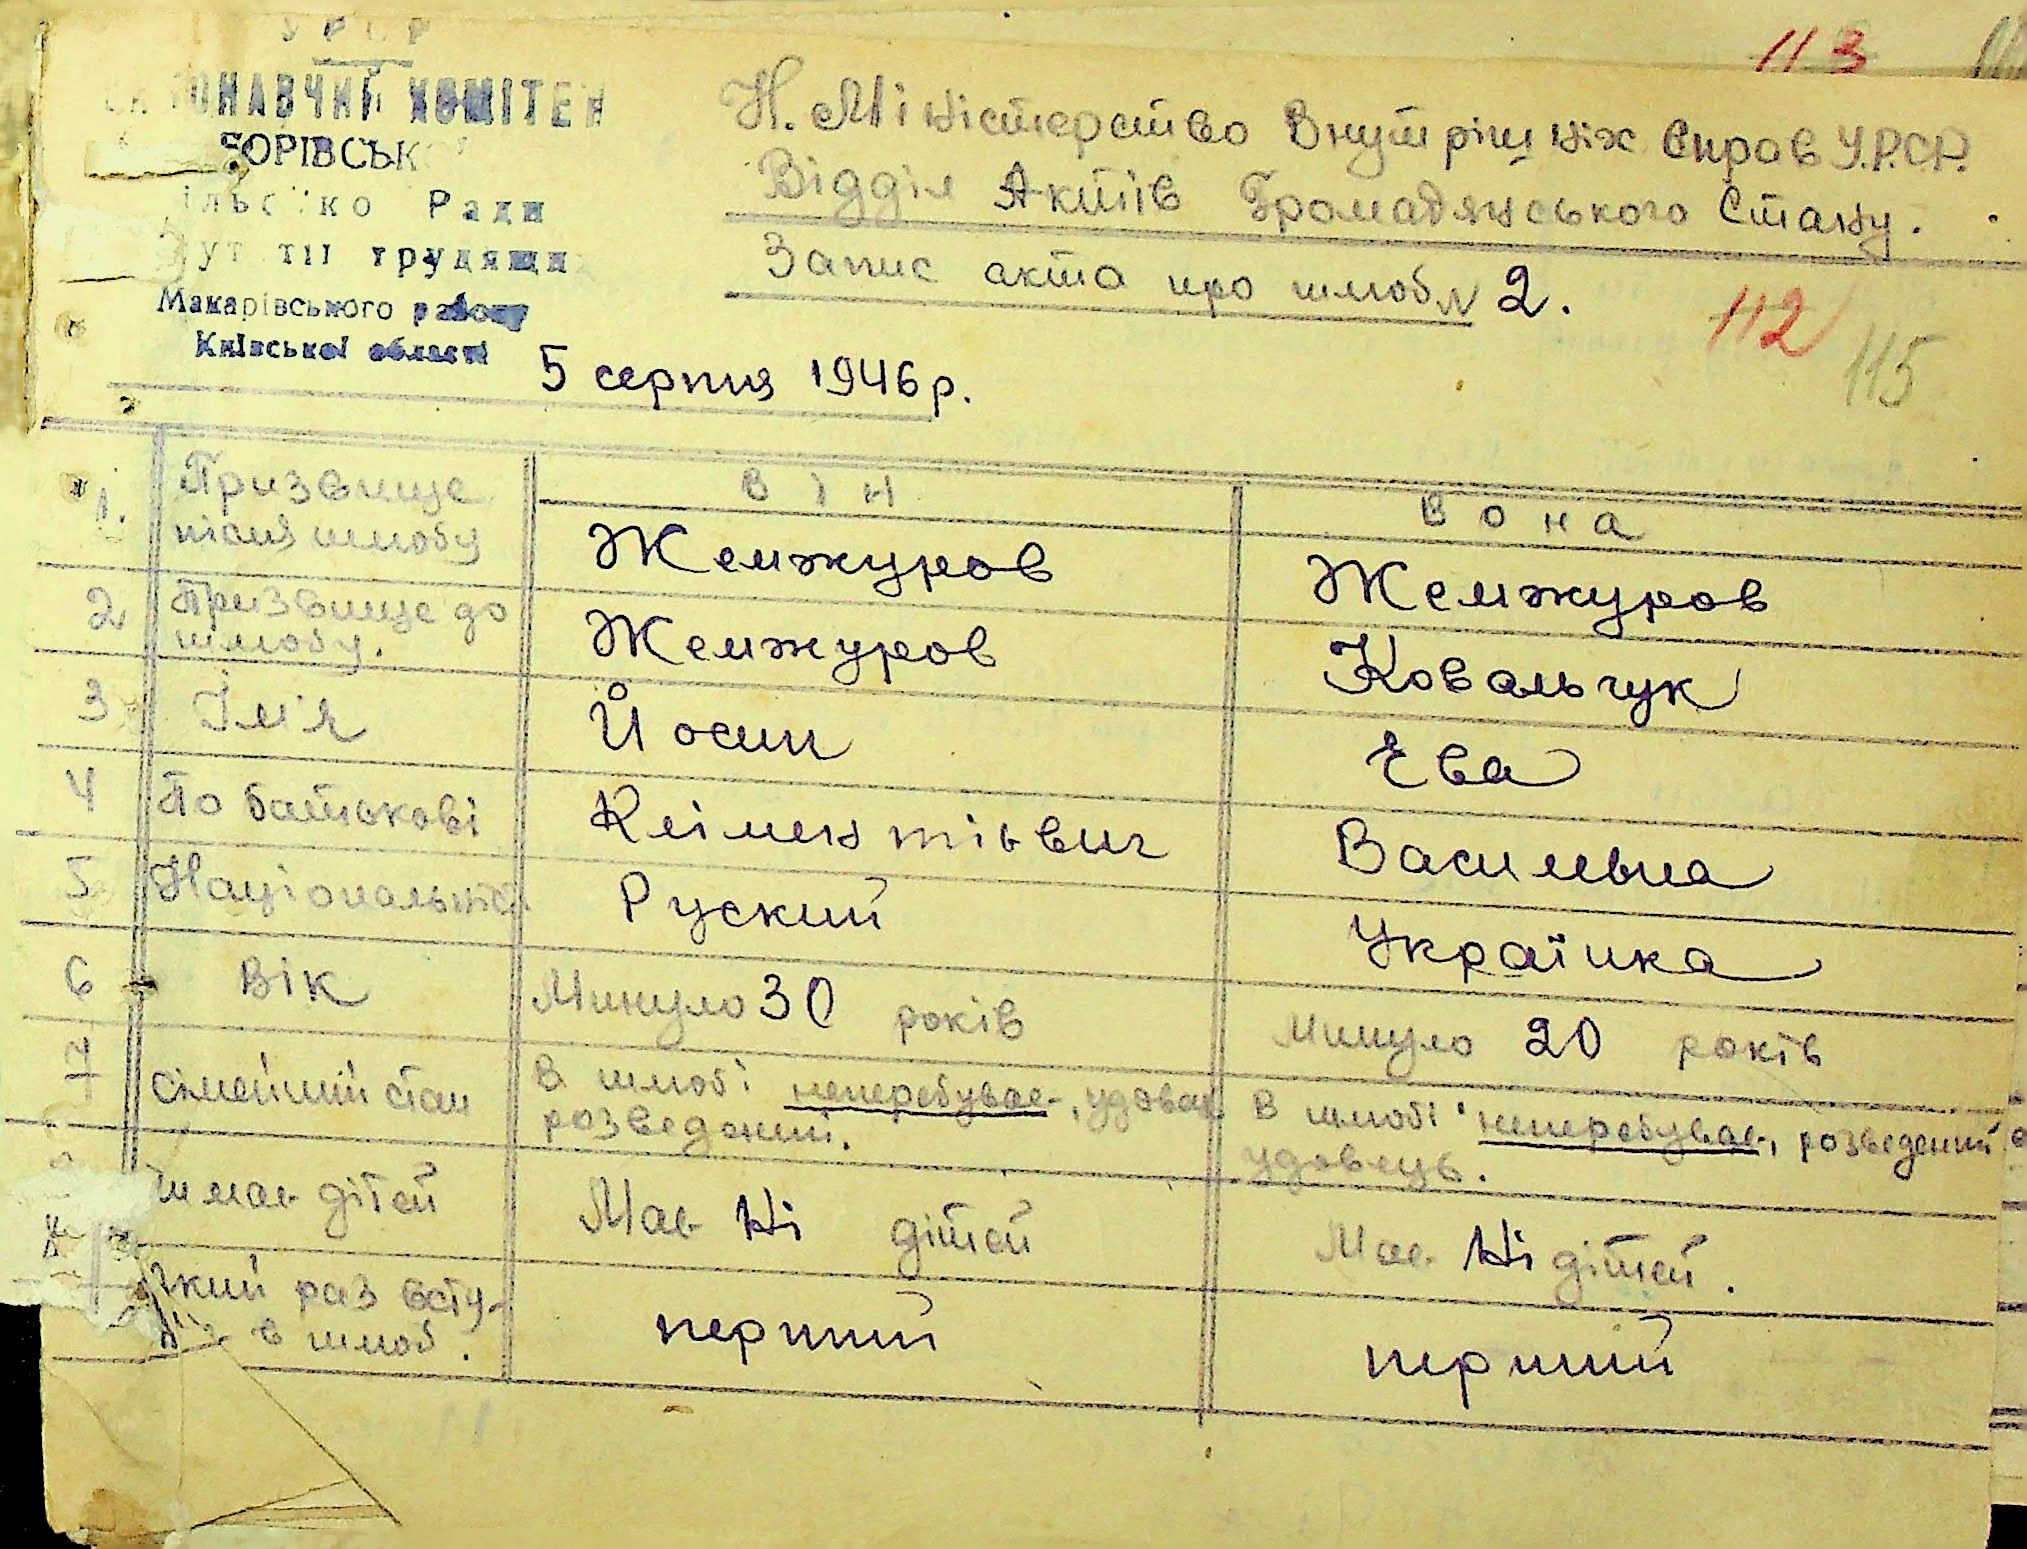 УРСР
ВИКОНАВЧИЙ КОМІТЕТ
БОРІВСЬК
Ради
трудящи
Макарівського району
Київської області
113
Н. Міністерство Внутрішніх Справ У.Р.С.Р.
Відділ Актів Громадянського Стану.
Запис акта про шлюб № 2.
112
115
5 серпня 1946 р.
Він
Вона
1. Призвище після шлюбу
Жемжуров
Жемжуров
2 Призвище до шлюбу.
Жемжуров
Ковальчук
3 Ім'я
Йосип
Ева
4 По батькові
Кліментьвич
Василевна
5 Національність
Руский
Українка
6 Вік
Минуло 30 років
Минуло 20 років
7 Сімейний стан
В шлюбі неперебуває, удовец
розведений.
В шлюбі неперебуває, розведений
удовець.
чи має дітей
Має Ні дітей
Має Ні дітей.
який раз всту-
в шлюб.
перший
перший